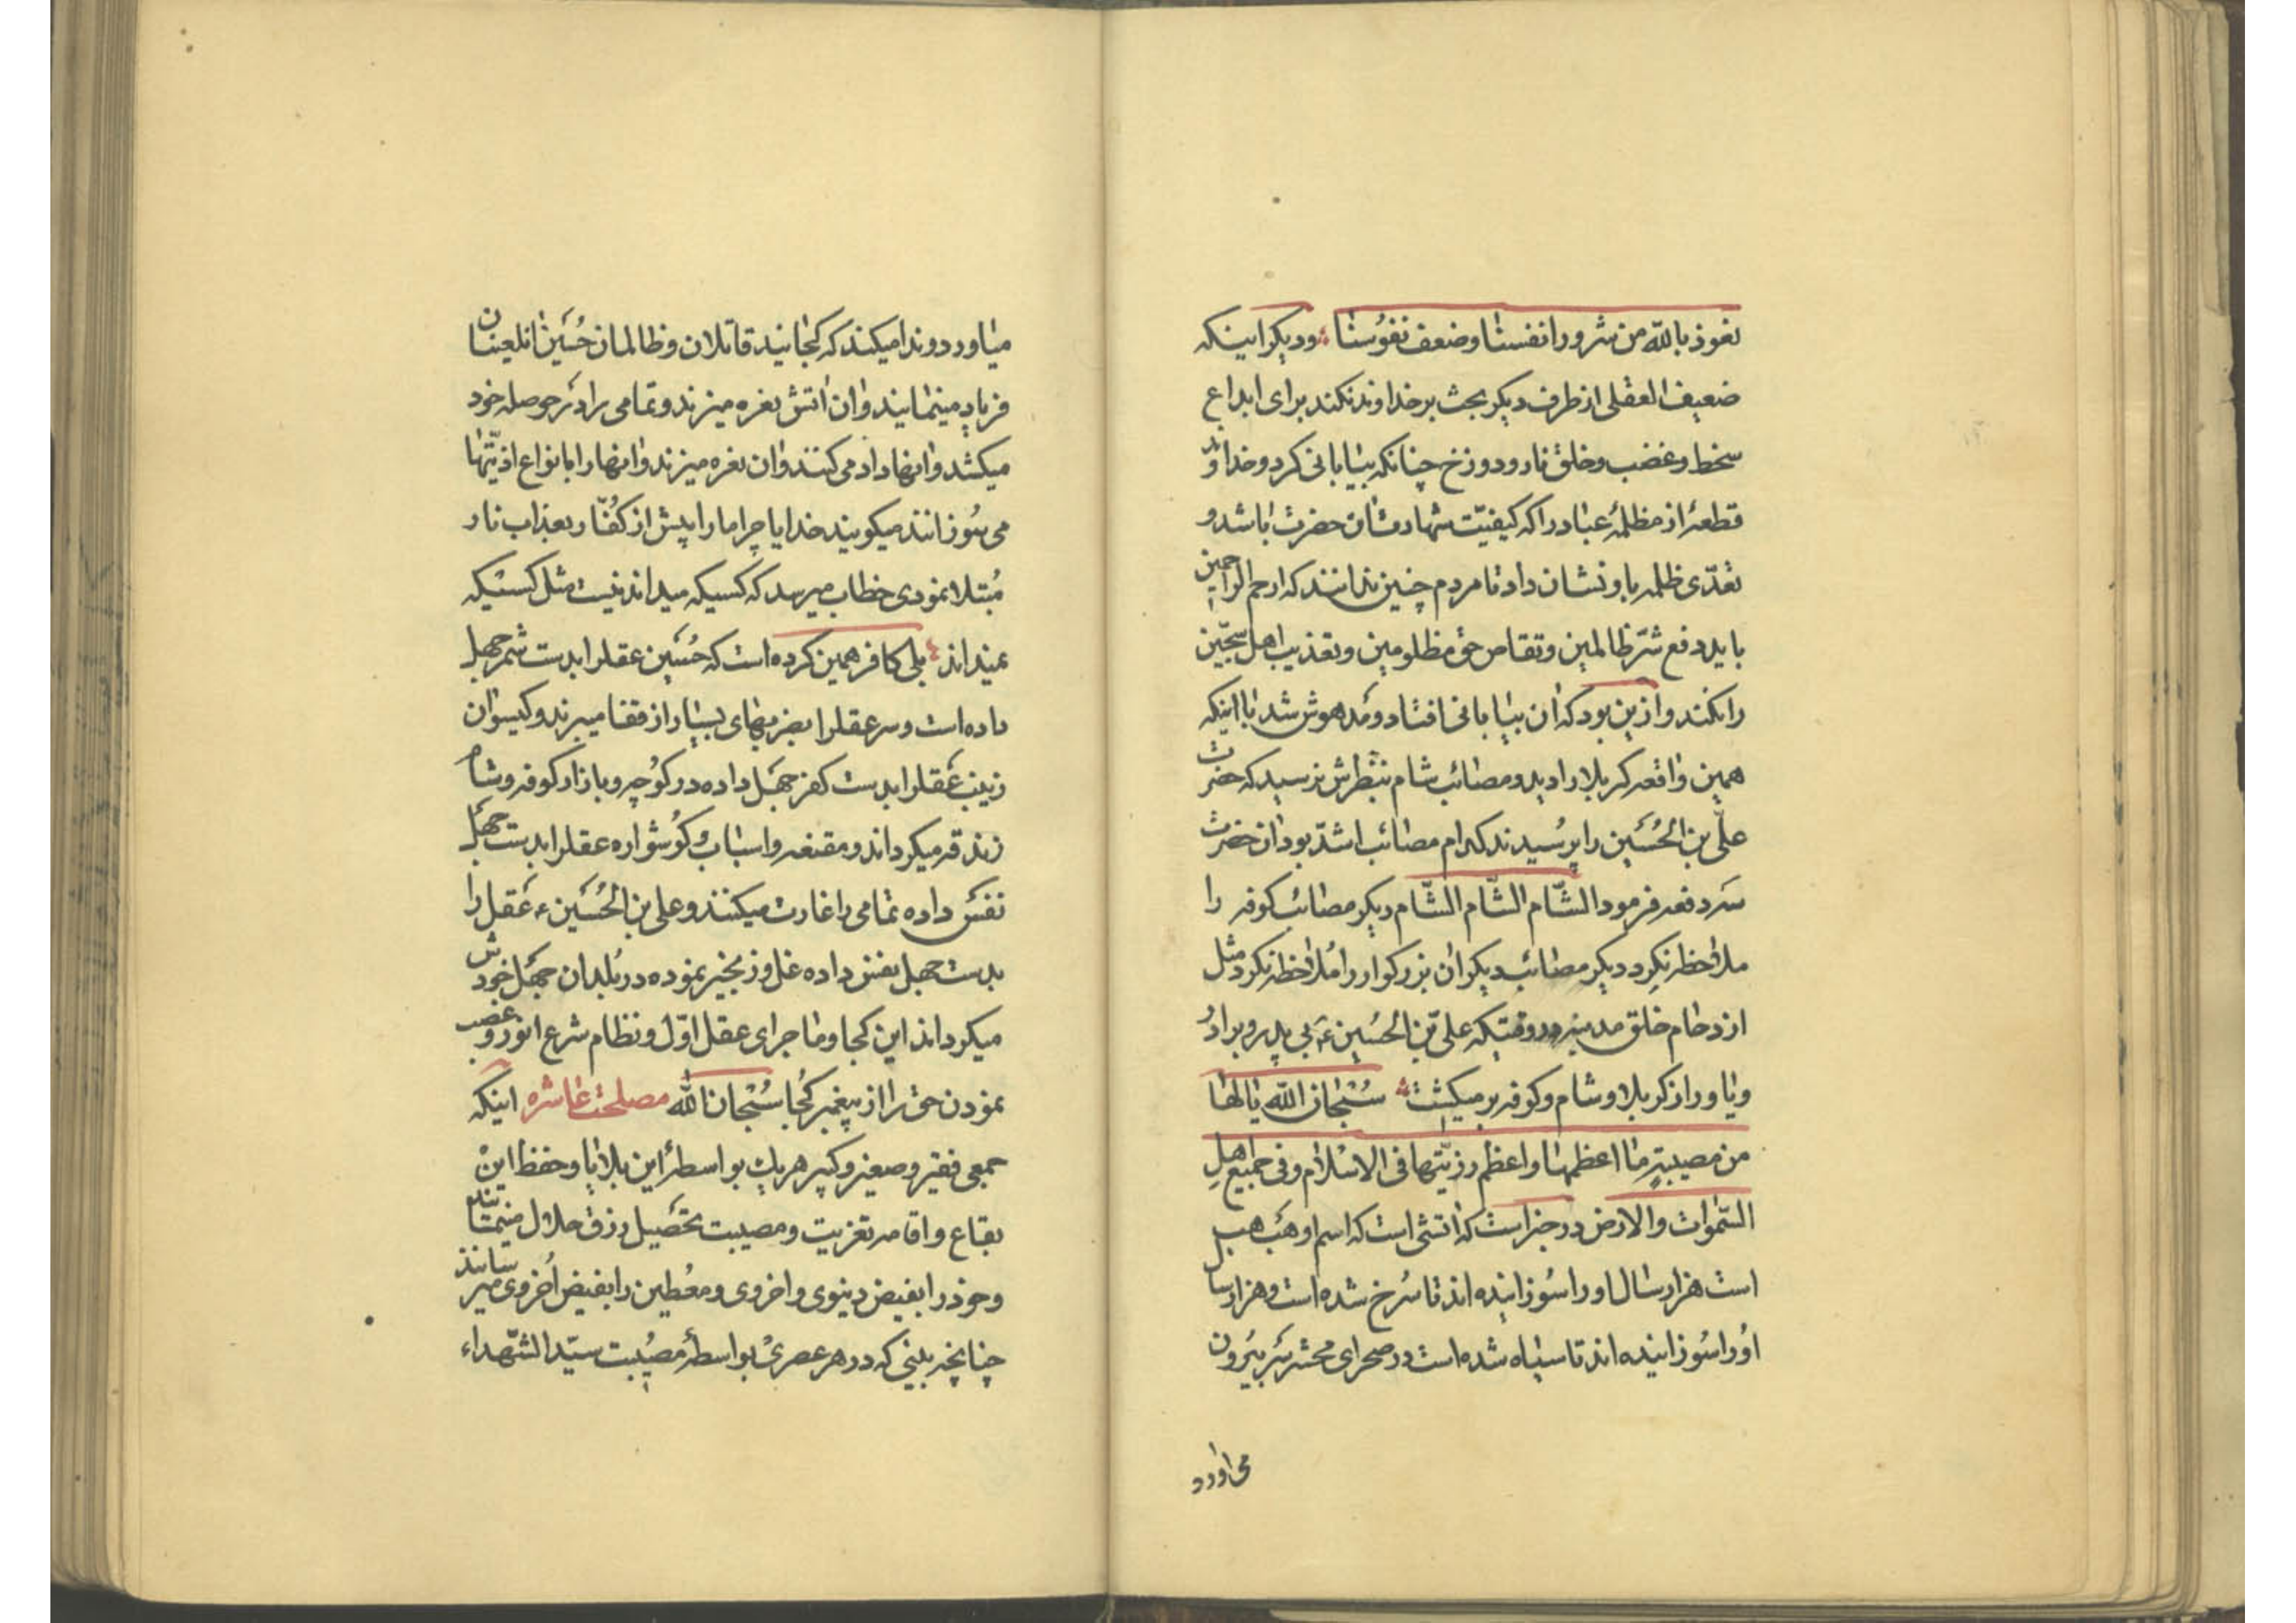 نعوذ بالله من شرور انفسنا وضعف نفوسنا ودیکر اینکه
ضعیف العقلی از طرف دیکر بحث بر خداوند نکند برای ابداع
سخط وغضب وخلق نار ودوزخ چنانکه بیابانی کرد وخدا و
قطعهٔ از مظلمهٔ عباد را که کیفیّت شهادت ان حضرت باشد و
تعدّی ظلمه باو نشان داد تا مردم چنین ندانند که ارحم الراحمین
باید دفع شرّ ظالمین وتقاص حق مظلومین وتعذیب اهل سجّین
را نکند وازین بود که ان بیابانی افتاد ومدهوش شد با اینکه
همین واقعه کربلا را دید ومصائب شام بنظرش نرسید که حضرت
علّی بن الحُسَین را پرُسیدند کدام مصائب اشدّ بود ان حضرت
سه دفعه فرمود الشّام الشّام الشّام دیکر مصائب کوفه را
ملاحظه نکرد دیکر مصائب دیکر ان بزرکوار را مُلاحظه نکرد مثل
ازدحام خلق مدینه در وقتیکه علیّ بن الحُسین ع بی پدر وبرادر
ویاور از کربلا وشام وکوفه بر میکشت سُبْحان الله یا لها
من مصیبةٍ ما اعظمها واعظم رزیّتها فی الاسْلام وفی جمیع اهلِ
السّمٰوات والارض در خبر است که اتشی است که اسم او هَب هب
است هزار سال او را سُوزانیده اند تا سُرخ شده است وهزار سال
اوُ را سُوزانیده اند تا سیاه شده است در صحرای محشر سَر بیرُون
می اورد
میاورد وندا میکند که کجائید قاتلان وظالمان حُسَین انلعینان
فریاد مینمایند وان اتش نعره میزند وتمامی را در حوصله خود
میکشد وانها داد می کنند وان نعره میزند وانها را بانواع اذیّتها
می سُوزانند میکویند خدایا چرا ما را پیش از کُفّار بعذاب نار
مُبتلا نمودی خطاب میرسد که کسیکه میداند نیست مثل کسیْکه
نمیداند بلی کافر همین کرده است که حُسَین عقلرا بدست شمر جهل
داده است وسر عقلرا بضربهای بسیار از قفا میبرند وکیسوان
زینب عَقلرا بدست کفر جهَل داده در کوُچه وبازار کوفه وشام
زندقه میکرداند ومقنعه واسباب وکوُشواره عقلرا بدست جهل
نفس داده تمامی را غارت میکنند وعلی بن الحُسَین ع عَقل را
بدست جهل نفس داده غل وزنجیر نموده در بُلدان جهَل خودش
میکرداند این کجا وماجرای عقل اوّل ونظام شرع انور وغصب
نمودن حق را از پیغمبر کجا سُبْحان الله مصلحت عاشره اینکه
جمعی فقیر وصغیر وکبیر هر یك بواسطهٔ این بلایا وحفظ این
بقاع واقامه تعزیت ومصیبت تحصیل رزق حلال مینمایند
وخود را بفیض دنیوی واخروی ومعُطین را بفیض اُخروی میرسانند
چنانچه بینی که در هر عصریْ بواسطهٔ مصُیبت سیّد الشّهداء